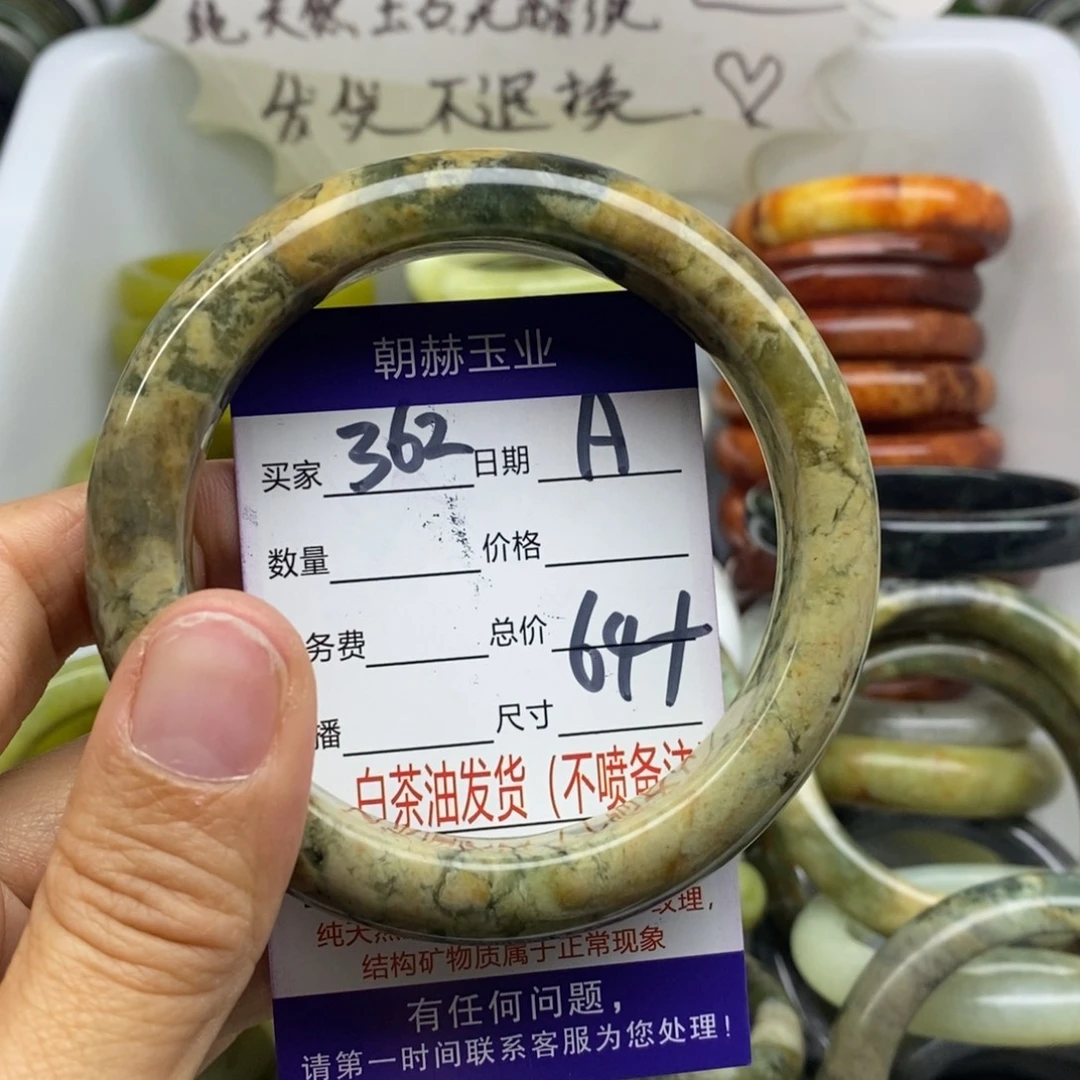 纯天然玉石无酸洗
发货不退换
朝赫玉业
买家 362 日期 A
数量 价格
务费 总价 64十
播 尺寸
白茶油发货(不喷备注
纹理,
纯天然
结构矿物质属于正常现象
有任何问题,
请第一时间联系客服为您处理!